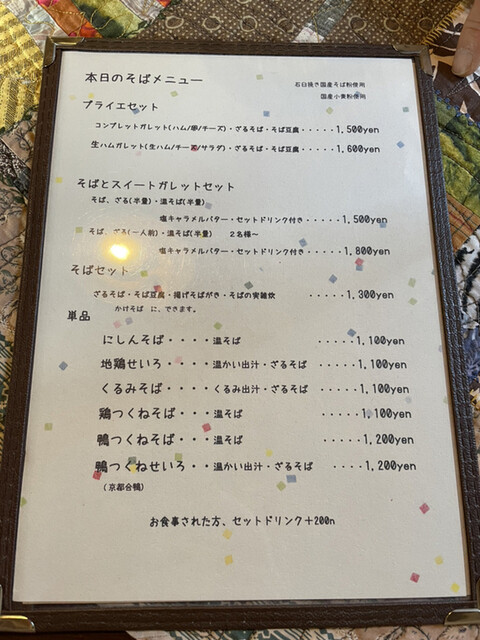 本日のそばメニュー
石臼挽き国産そば粉使用
国産小麦粉使用
プライエセット
コンプレットガレット(ハム/卵/チーズ)・ざるそば・そば豆腐・・・・・1,500yen
生ハムガレット(生ハム/チーズ/サラダ)・ざるそば・そば豆腐・・・・・1,600yen
そばとスイートガレットセット
そば、ざる(半量)・温そば(半量)
塩キャラメルバター・セットドリンク付き・・・・・1,500yen
そば、ざる(一人前)・温そば(半量) 2名様～
塩キャラメルバター・セットドリンク付き・・・・・1,800yen
そばセット
ざるそば・そば豆腐・揚げそばがき・そばの実雑炊 ・・・・・1,300yen
かけそば に、できます。
単品
にしんそば・・・・温そば ・・・・1,100yen
地鶏せいろ・・・・温かい出汁・ざるそば ・・・・1,100yen
くるみそば・・・・くるみ出汁・ざるそば ・・・・1,100yen
鶏つくねそば・・・温そば ・・・・1,100yen
鴨つくねそば・・・温そば ・・・・1,200yen
鴨つくねせいろ・・温かい出汁・ざるそば ・・・・1,200yen
(京都合鴨)
お食事された方、セットドリンク＋200n